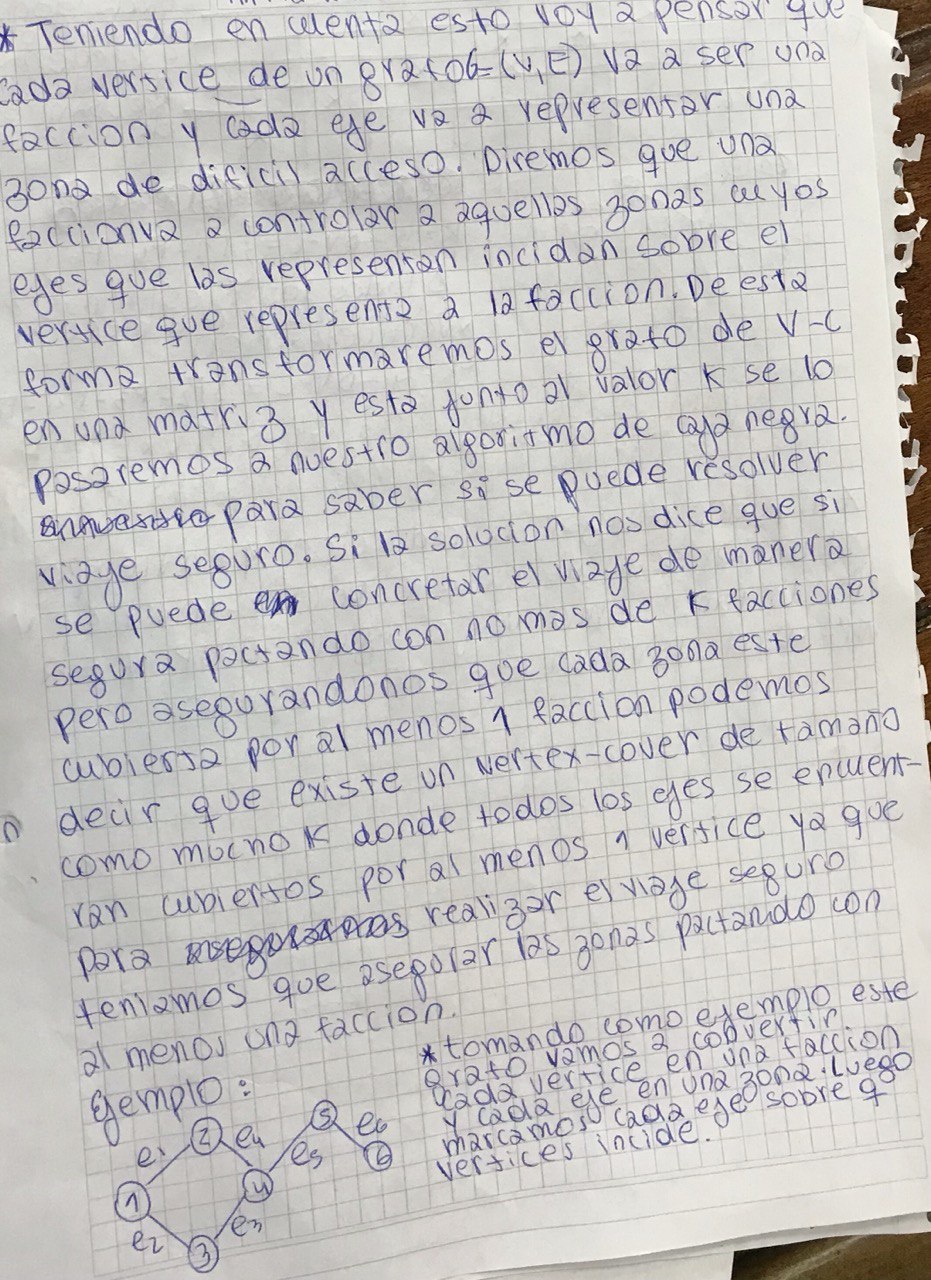 * Teniendo en cuenta esto voy a pensar que
cada vertice de un grafo G=(V,E) va a ser una
faccion y cada eje va a representar una
zona de dificil acceso. Diremos que una
faccion va a controlar a aquellas zonas cuyos
ejes que las representan incidan sobre el
vertice que representa a la faccion. De esta
forma transformaremos el grafo de V-C
en una matriz y esta junto al valor K se lo
pasaremos a nuestro algoritmo de caja negra.
para saber si se puede resolver
viaje seguro. Si la solucion nos dice que si
se puede concretar el viaje de manera
segura pactando con no mas de K facciones
pero asegurandonos que cada zona este
cubierta por al menos 1 faccion podemos
decir que existe un vertex-cover de tamaño
como mucho K donde todos los ejes se encuent-
ran cubiertos por al menos 1 vertice ya que
para realizar el viaje seguro
teniamos que asegurar las zonas pactando con
al menos una faccion.
ejemplo:
* tomando como ejemplo este
grafo vamos a convertir
cada vertice en una faccion
y cada eje en una zona. Luego
marcamos cada eje sobre q
vertices incide.
e1 2 e4 5 e6
1 4 e5 6
e2 3 e3